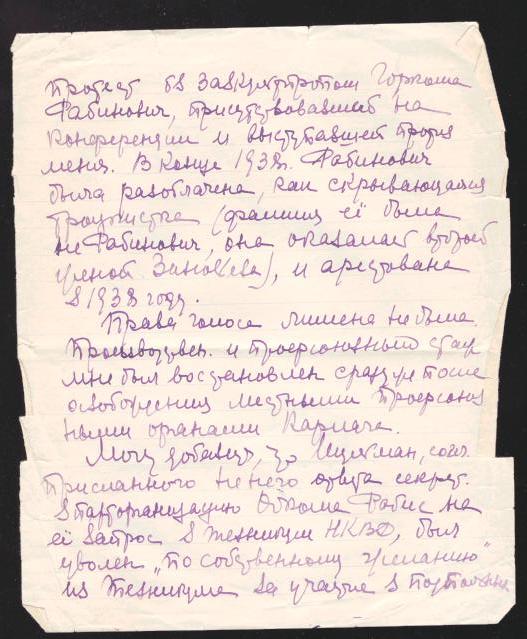 протест б. завкультпропом Горкома
Рабинович, присутствовавшей на
конференции и выступавшей против
меня. В конце 1938. Рабинович
была разоблачена, как скрывающаяся
троцкистка (фамилия её была
не Рабинович, она оказалась второй
женой Зиновьева), и арестована
в 1938 году.
Права голоса лишена не была.
Производствен. и профсоюзный стаж
мне был восстановлен сразу же после
освобождения местными профсоюз
ными органами
Могу добавить, что согл.
присланного на него ответа секрет.
парторганизацию Обкома Рабис на
её запрос в техникум НКВД, был
уволен „по собственному желанию"
из Техникума за участие в